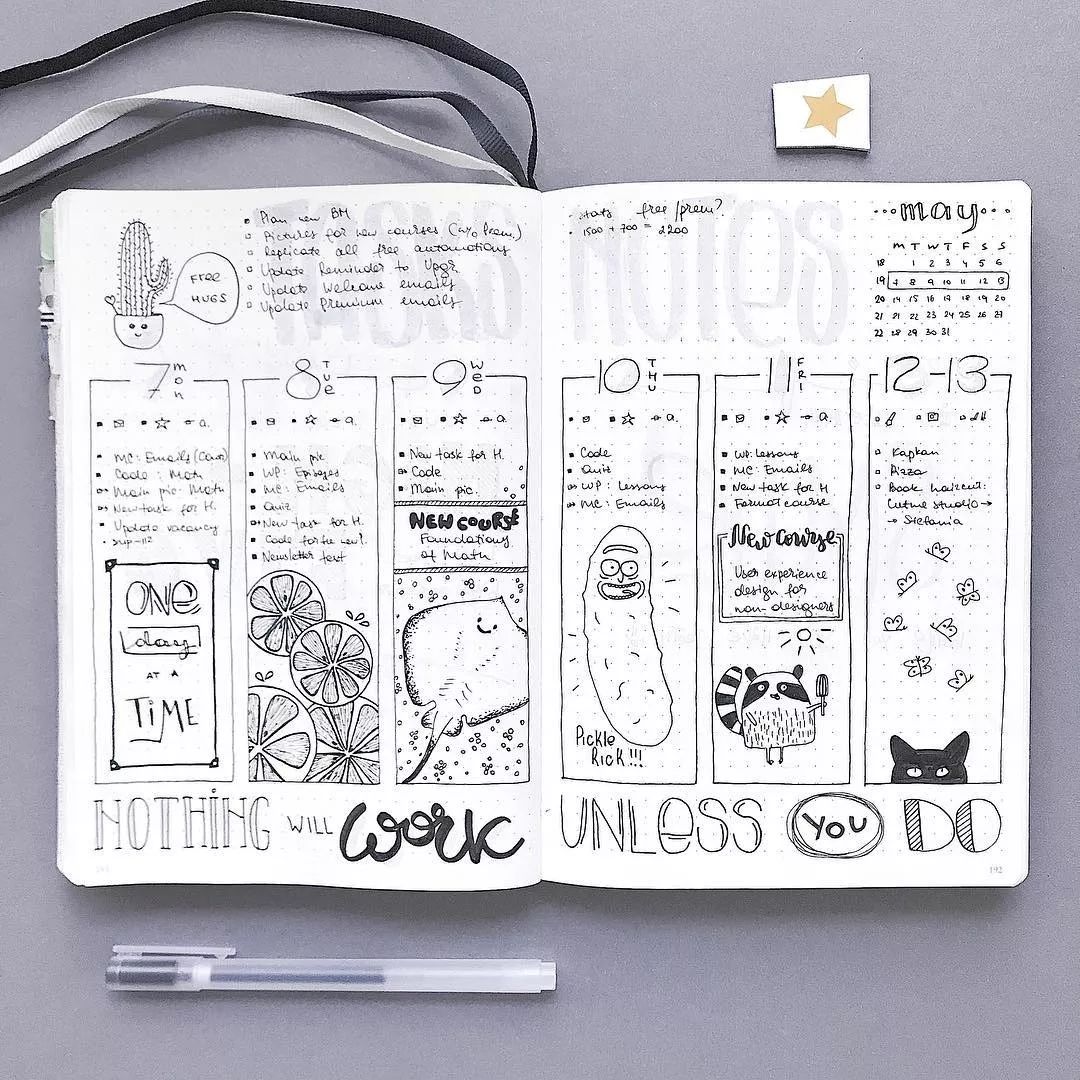 FREE
HUGS
Plan new BM
Pictures for new courses (w/o Prem.)
Replicate all free automations
Update Reminder to Upgr.
Update Welcome emails
Update Premium emails
TASKS
NOTES
stats free/prem?
1500 + 700 = 2200
may
M T W T F S S
18 1 2 3 4 5 6
19 7 8 9 10 11 12 13
20 14 15 16 17 18 19 20
21 21 22 23 24 25 26 27
22 28 29 30 31
7 mon
MC: Emails
Code: Math
Main pic: Math
New task for H.
Update vacancy
ONE
day
AT A
TIME
8 TUE
a.
Main pic
WP: Episodes
MC: Emails
Quiz
New task for H.
Code for the new!
Newsletter text
9 WED
a.
New task for H.
Code
Main pic.
NEW COURSE
Foundations
of Math
10 THU
a.
Code
Quiz
WP: Lessons
MC: Emails
Pickle
Rick!!!
11 FRI
a.
WP: Lessons
MC: Emails
New task for H
Format course
New course
User experience
design for
non-designers
12-13
Kapkan
Pizza
Book haircut:
→ Stefania
NOTHING WILL work UNLESS YOU DO
192